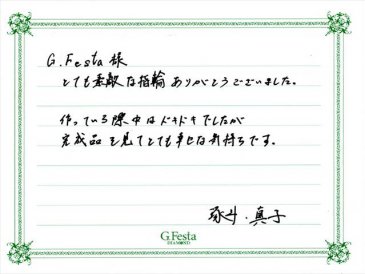 G.Festa 様
とても素敵な指輪ありがとうございました。
作っている際中はドキドキでしたが
完成品を見てとても幸せな気持ちです。
琢斗・真子
G.Festa
DIAMOND